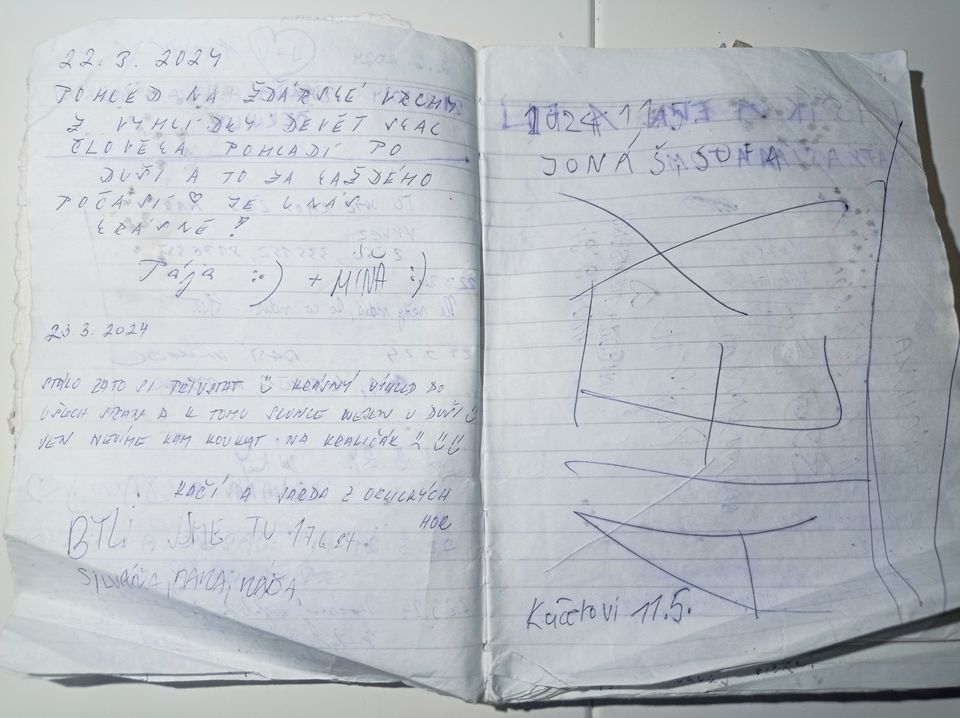 22.3.2024
POHLED NA ŽĎÁRSKÉ VRCHY
Z VYHLÍDKY DEVĚT SKAL
ČLOVĚKA POHLADÍ PO
DUŠI A TO ZA KAŽDÉHO
POČASÍ ♡ JE U NÁS
KRÁSNĚ!
Tája :) + MINA :)
23.3.2024
STÁLO ZATO SI PŘIVSTAT KRÁSNÝ VÝHLED DO
VŠECH STRAN A K TOMU SLUNCE NEJEN V DUŠI
JEN NEVÍME KAM KOUKAT NA KRALIČÁK
KAČÍ A JARDA Z ORLICKÝCH
HOR
BYLI JSME TU 17.6.24
1024 11.5
JONÁŠ, SOFA
Kačerovi 11.5.